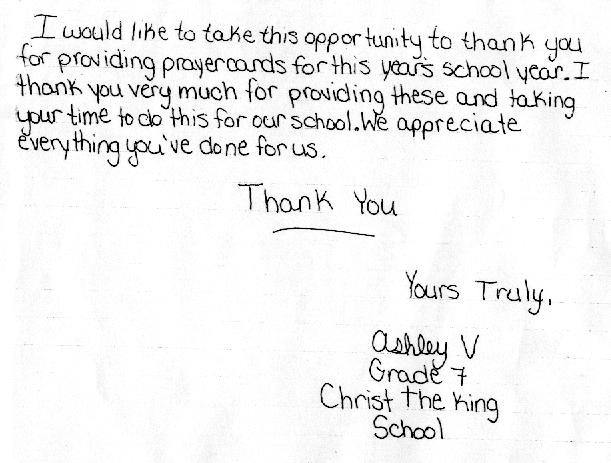 I would like to take this opportunity to thank you
for providing prayercards for this years school year. I
thank you very much for providing these and taking
your time to do this for our school. We appreciate
everything you've done for us.
Thank You
Yours Truly,
Ashley V
Grade 7
Christ the King
School